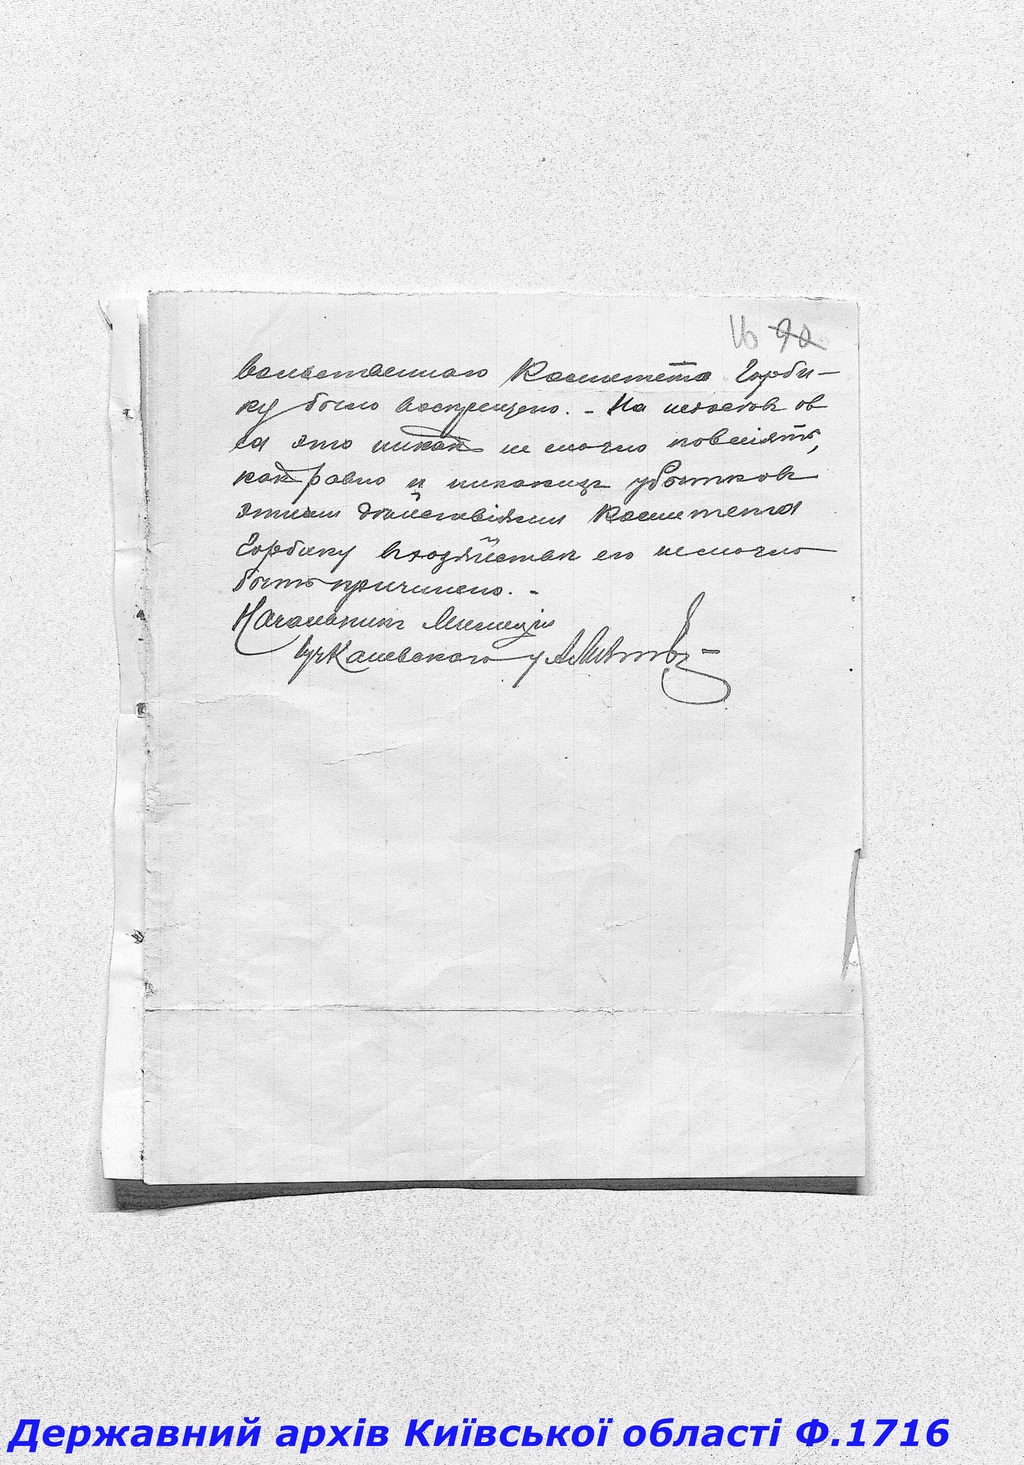 16 92
Комитета Горби-
ку было воспрещено. - На недостаток ов
са это никак не могло повлиять,
как равно и никаких убытков
этими действіями Комитета
Горбику в хозяйстве его не могло
быть причинено. -
Начальник Милиціи
Каневского у
Державний архів Київської області Ф.1716